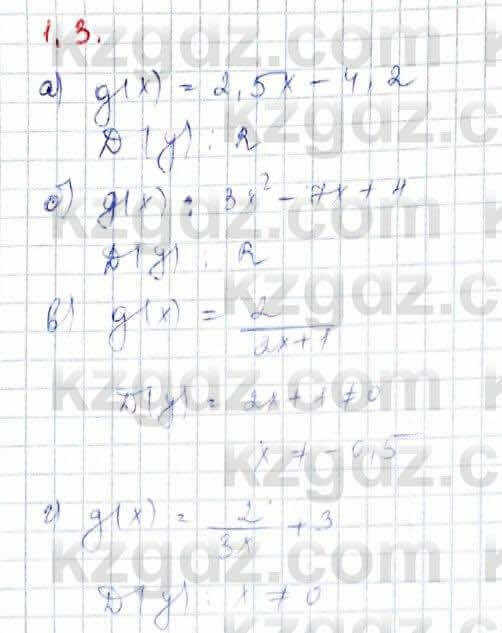 1.3.
а) g(x) = 2,5x - 4,2
D(y): R
б) g(x) = 3x² - 7x + 4
D(y): R
в) g(x) = 2/(2x+1)
D(y) = 2x+1≠0
x ≠ -0,5
г) g(x) = 2/3x + 3
D(y): x ≠ 0
kzgdz.com